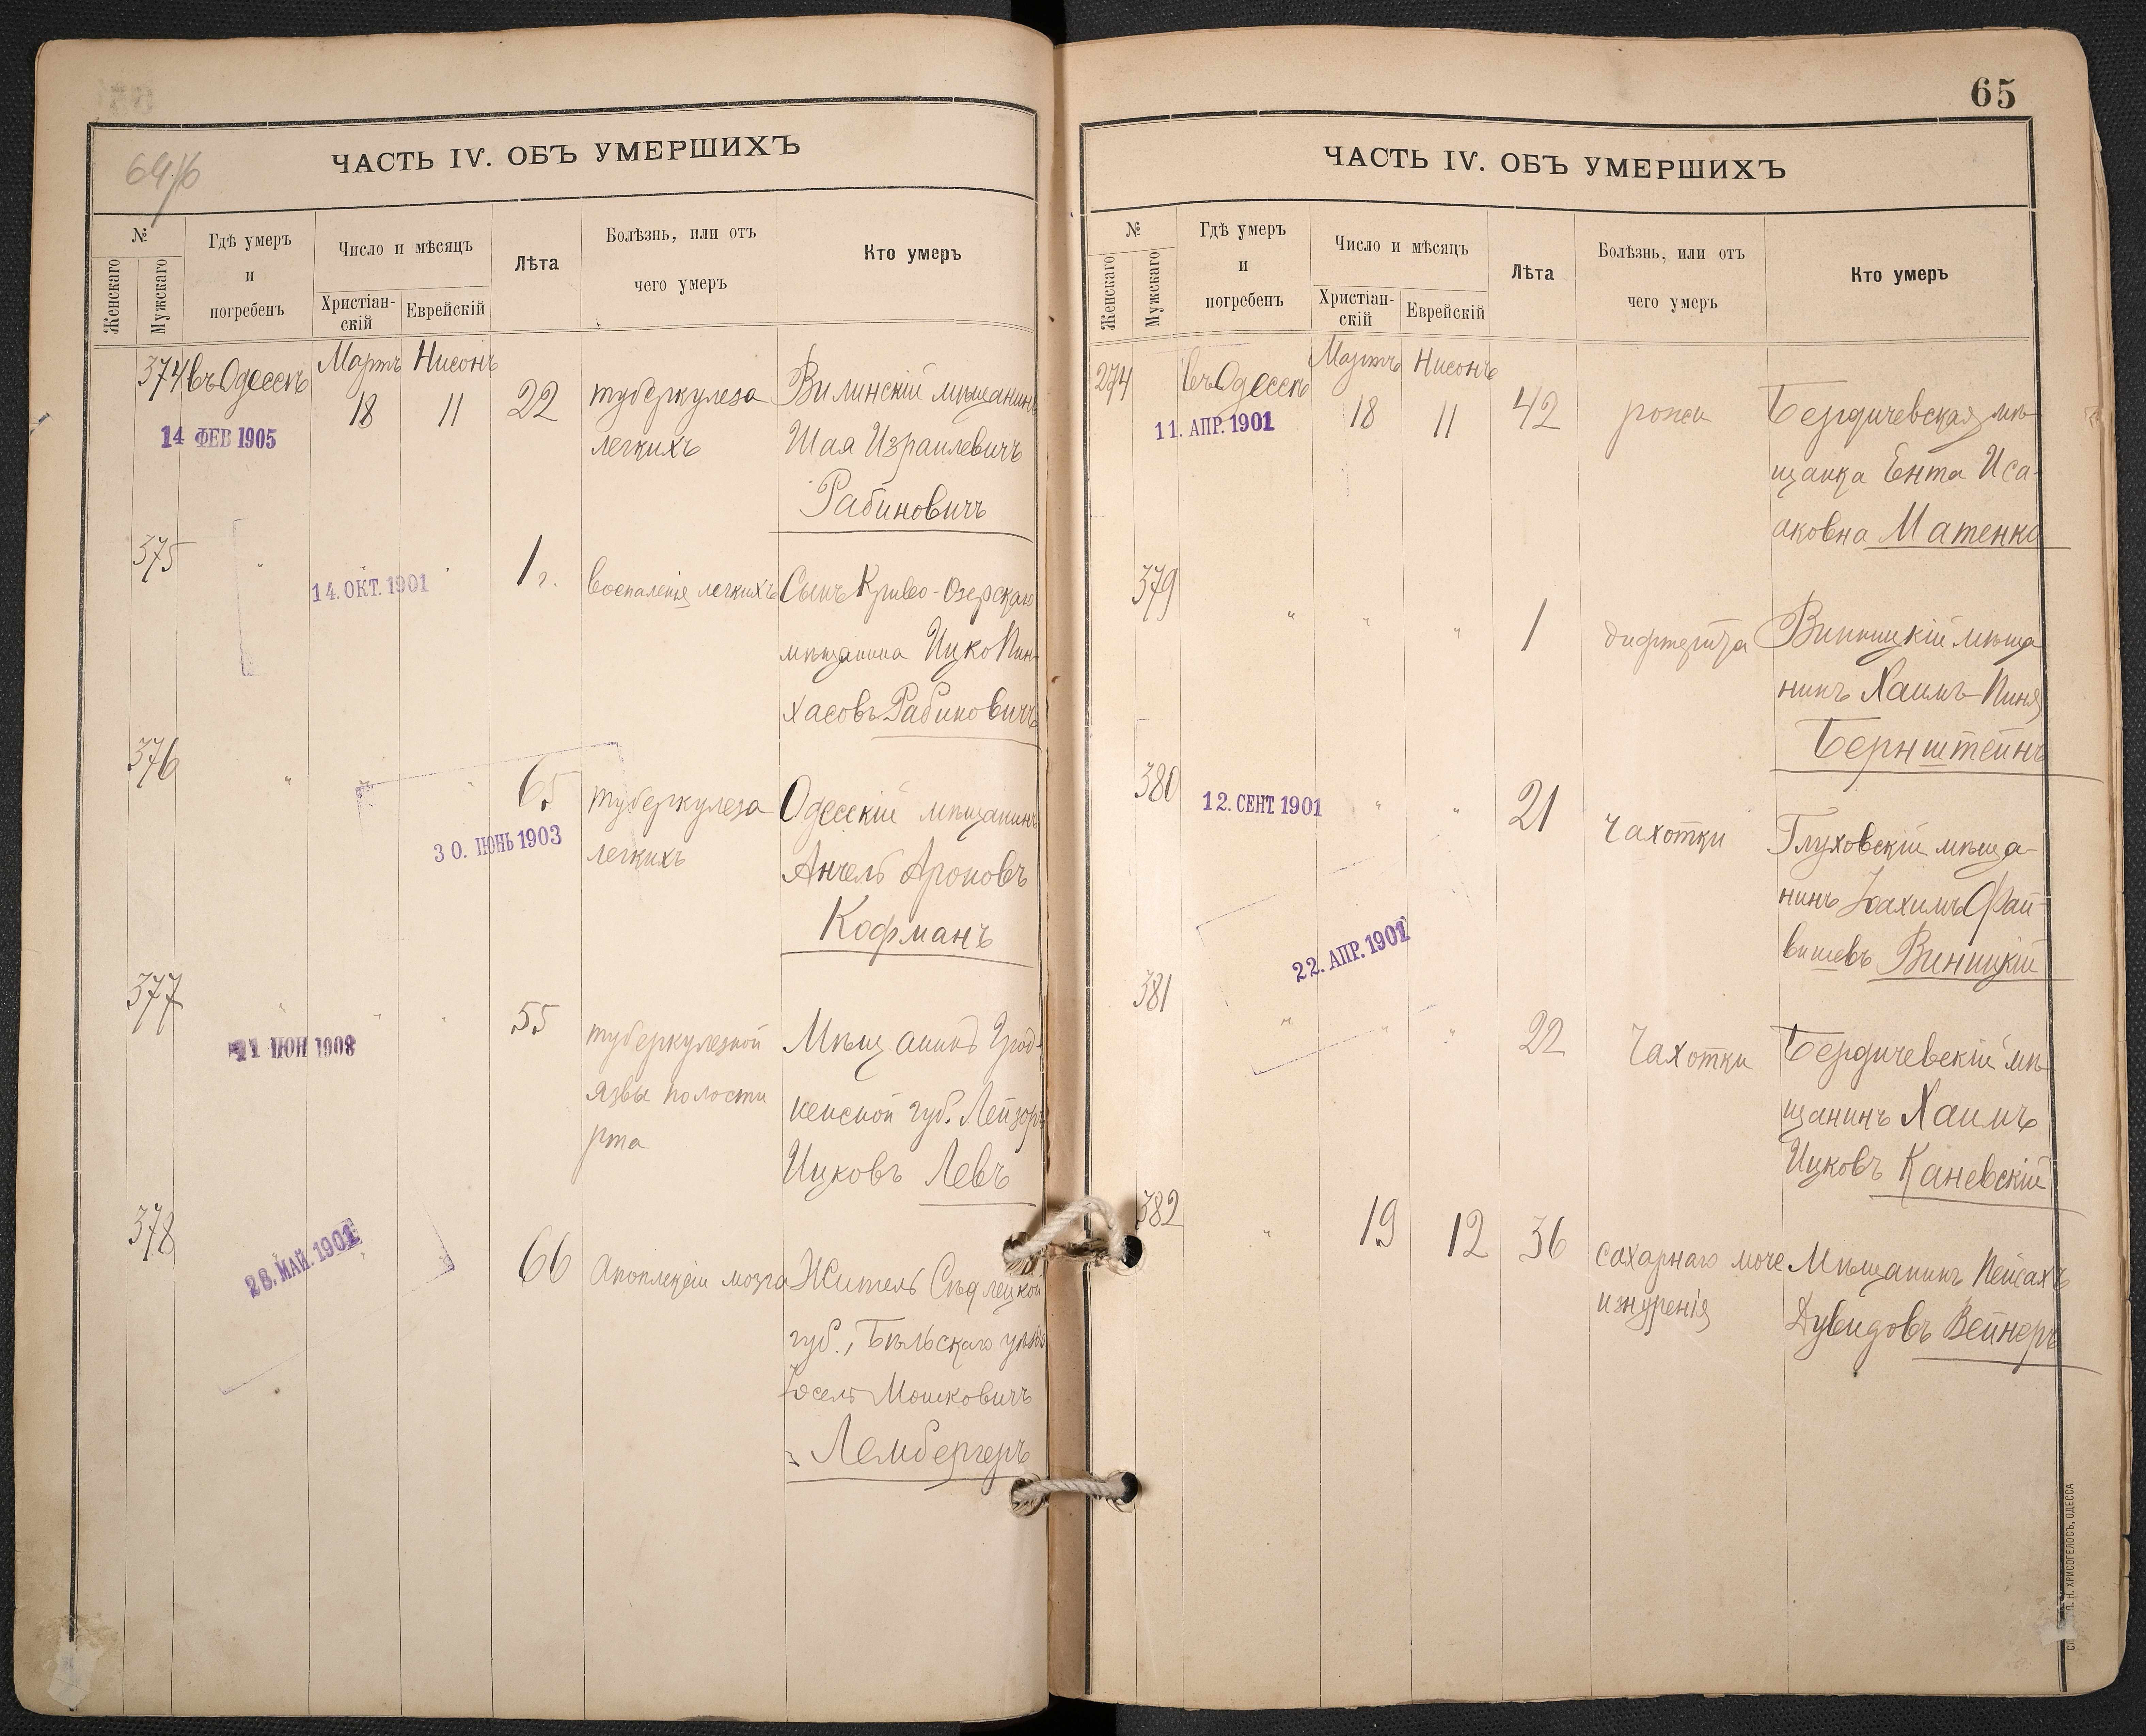 69/6
ЧАСТЬ IV. ОБЪ УМЕРШИХЪ
№
Женскаго
Мужскаго
Гдѣ умеръ
и
погребенъ
Число и мѣсяцъ
Христіан-
скій
Еврейскій
Лѣта
Болѣзнь, или отъ
чего умеръ
Кто умеръ
374 въ Одессѣ Мартъ Нисонъ
18 11 22
14 ФЕВ 1905
туберкулеза
легкихъ
Вилинскій мѣщанинъ
Шая Израилевичъ
Рабиновичъ
375 " " 1 г.
14. ОКТ. 1901
воспаленія легкихъ
Сынъ Криво-Озерскаго
мѣщанина Ицко Пин-
хасовъ Рабиновичъ
376 " " 65
30. ІЮНЬ 1903
туберкулеза
легкихъ
Одесскій мѣщанинъ
Анчель Ароновъ
Кофманъ
377 " " " 55
ІЮН 1908
туберкулезной
язвы полости
рта
Мѣщанинъ Грод-
ненской губ. Лейзоръ
Ицковъ Левъ
378 66
28. МАЙ. 1901
апоплексіи мозга
Житель Сѣдлецкой
губ., Бѣльскаго уѣзда
Іосель Мошковичъ
Лембергеръ
65
ЧАСТЬ IV. ОБЪ УМЕРШИХЪ
№
Женскаго
Мужскаго
Гдѣ умеръ
и
погребенъ
Число и мѣсяцъ
Христіан-
скій
Еврейскій
Лѣта
Болѣзнь, или отъ
чего умеръ
Кто умеръ
274 въ Одессѣ Мартъ Нисонъ
18 11 42
11. АПР. 1901
рожи
Бердичевская мѣ-
щанка Ента Иса-
аковна Матенко
379 " " " 1
дифтерита
Винницкій мѣща
нинъ Хаимъ-Пиня
Бернштейнъ
380 " " 21
12. СЕНТ. 1901
чахотки
Глуховскій мѣща-
нинъ Іоахимъ Фай-
вишевъ Виницкій
22. АПР. 1901
381 " " " 22
Чахотки
Бердичевскій мѣ-
щанинъ Хаимъ
Ицковъ Каневскій
382 " 19 12 36
сахарнаго моче
изнуренія
Мѣщанинъ Пейсахъ
Дувидовъ Вейнеръ
Н. ХРИСОГЕЛОСЪ, ОДЕССА